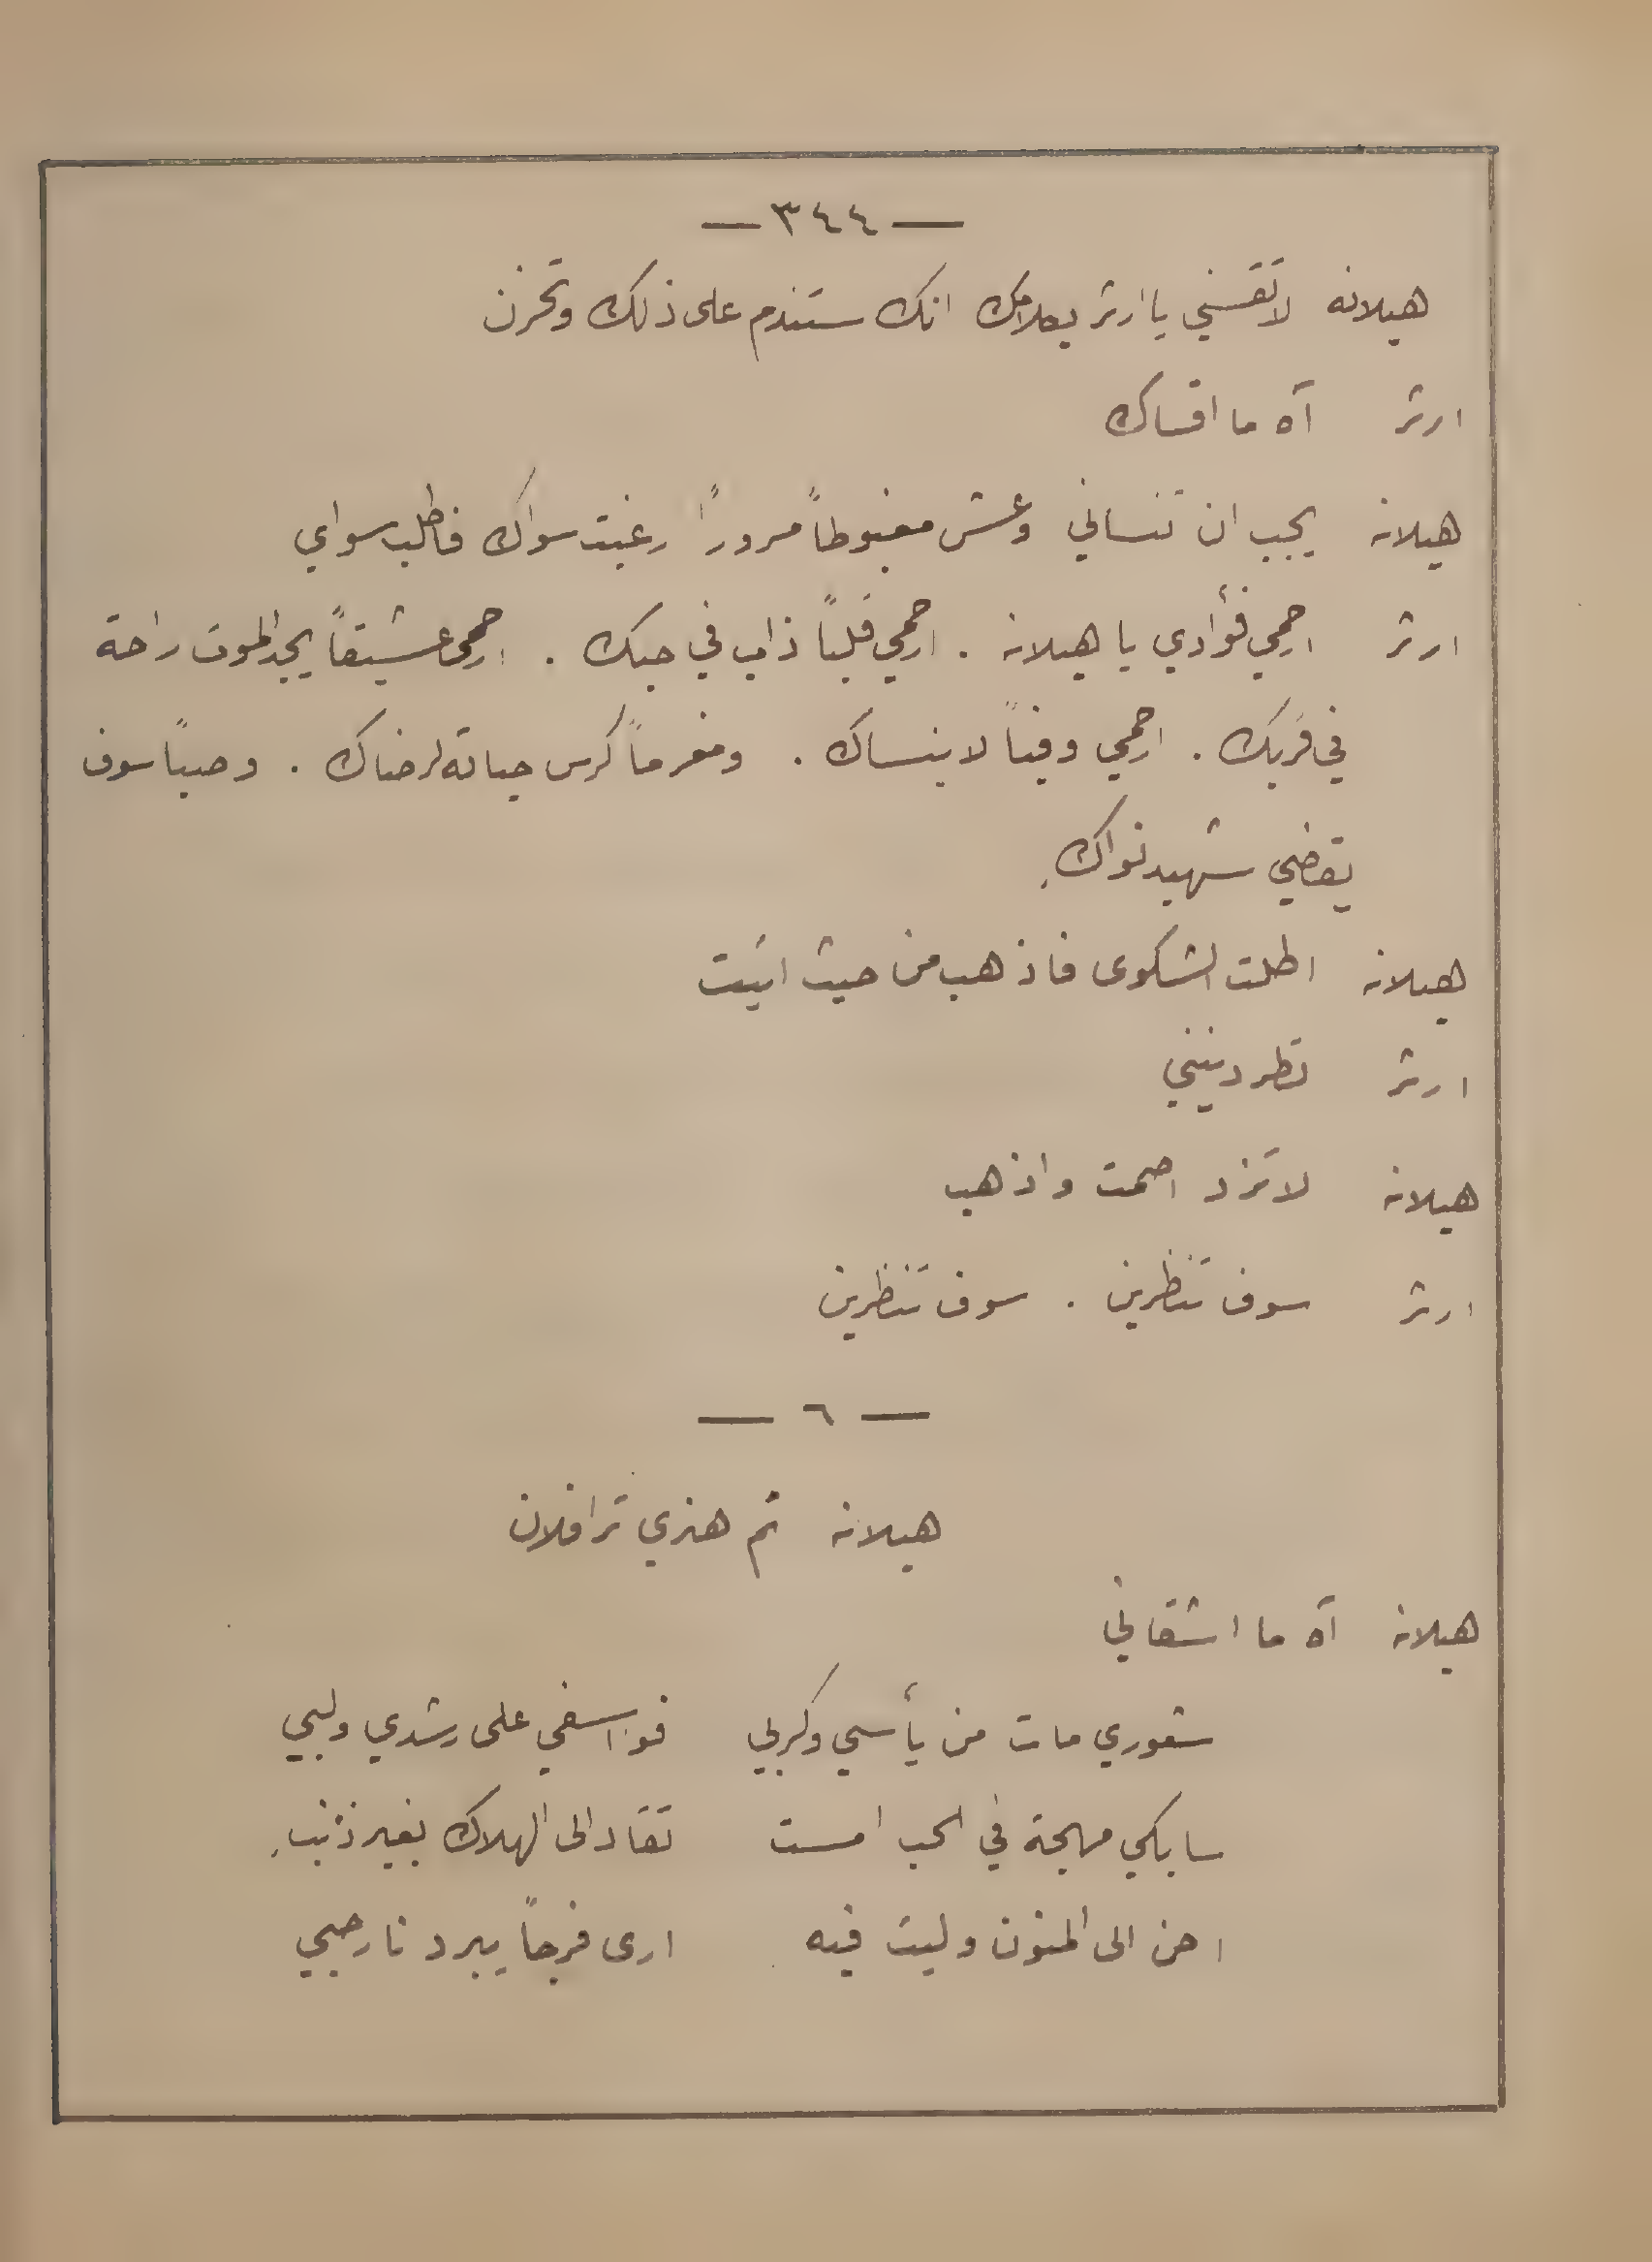 — ٣٤٤ —
هيلانه لا تقسني يا ارثر بكلامك انك ستندم على ذلك وتحزن
ارثر آه ما اقساك
هيلانه يجب ان تنساني وعش مغبوطاً مسروراً رغبت سواك فاطلب سواي
ارثر ارحمي فؤادي يا هيلانه . ارحمي قلباً ذاب في حبك . ارحمي عشيقاً يجد الموت راحة
في قربك . ارحمي وفياً لا ينساك . ومغرماً كرس حياته لرضاك . وصباً سوف
يقضي شهيد نواك .
هيلانه اطلت الشكوى فاذهب من حيث اتيت
ارثر تطردينني
هيلانه لا تزد اصمت واذهب
ارثر سوف تنظرين . سوف تنظرين
— ٦ —
هيلانه ثم هنري ثرافلان
هيلانه آه ما اشقاني
شعوري مات من يأسي وكربي فوا اسفي على رشدي ولبي
سابكي مهجة في الحب امست تقاد الى الهلاك بغير ذنب .
احن الى المنون وليت فيه ارى فرجاً يبرد نار حبي